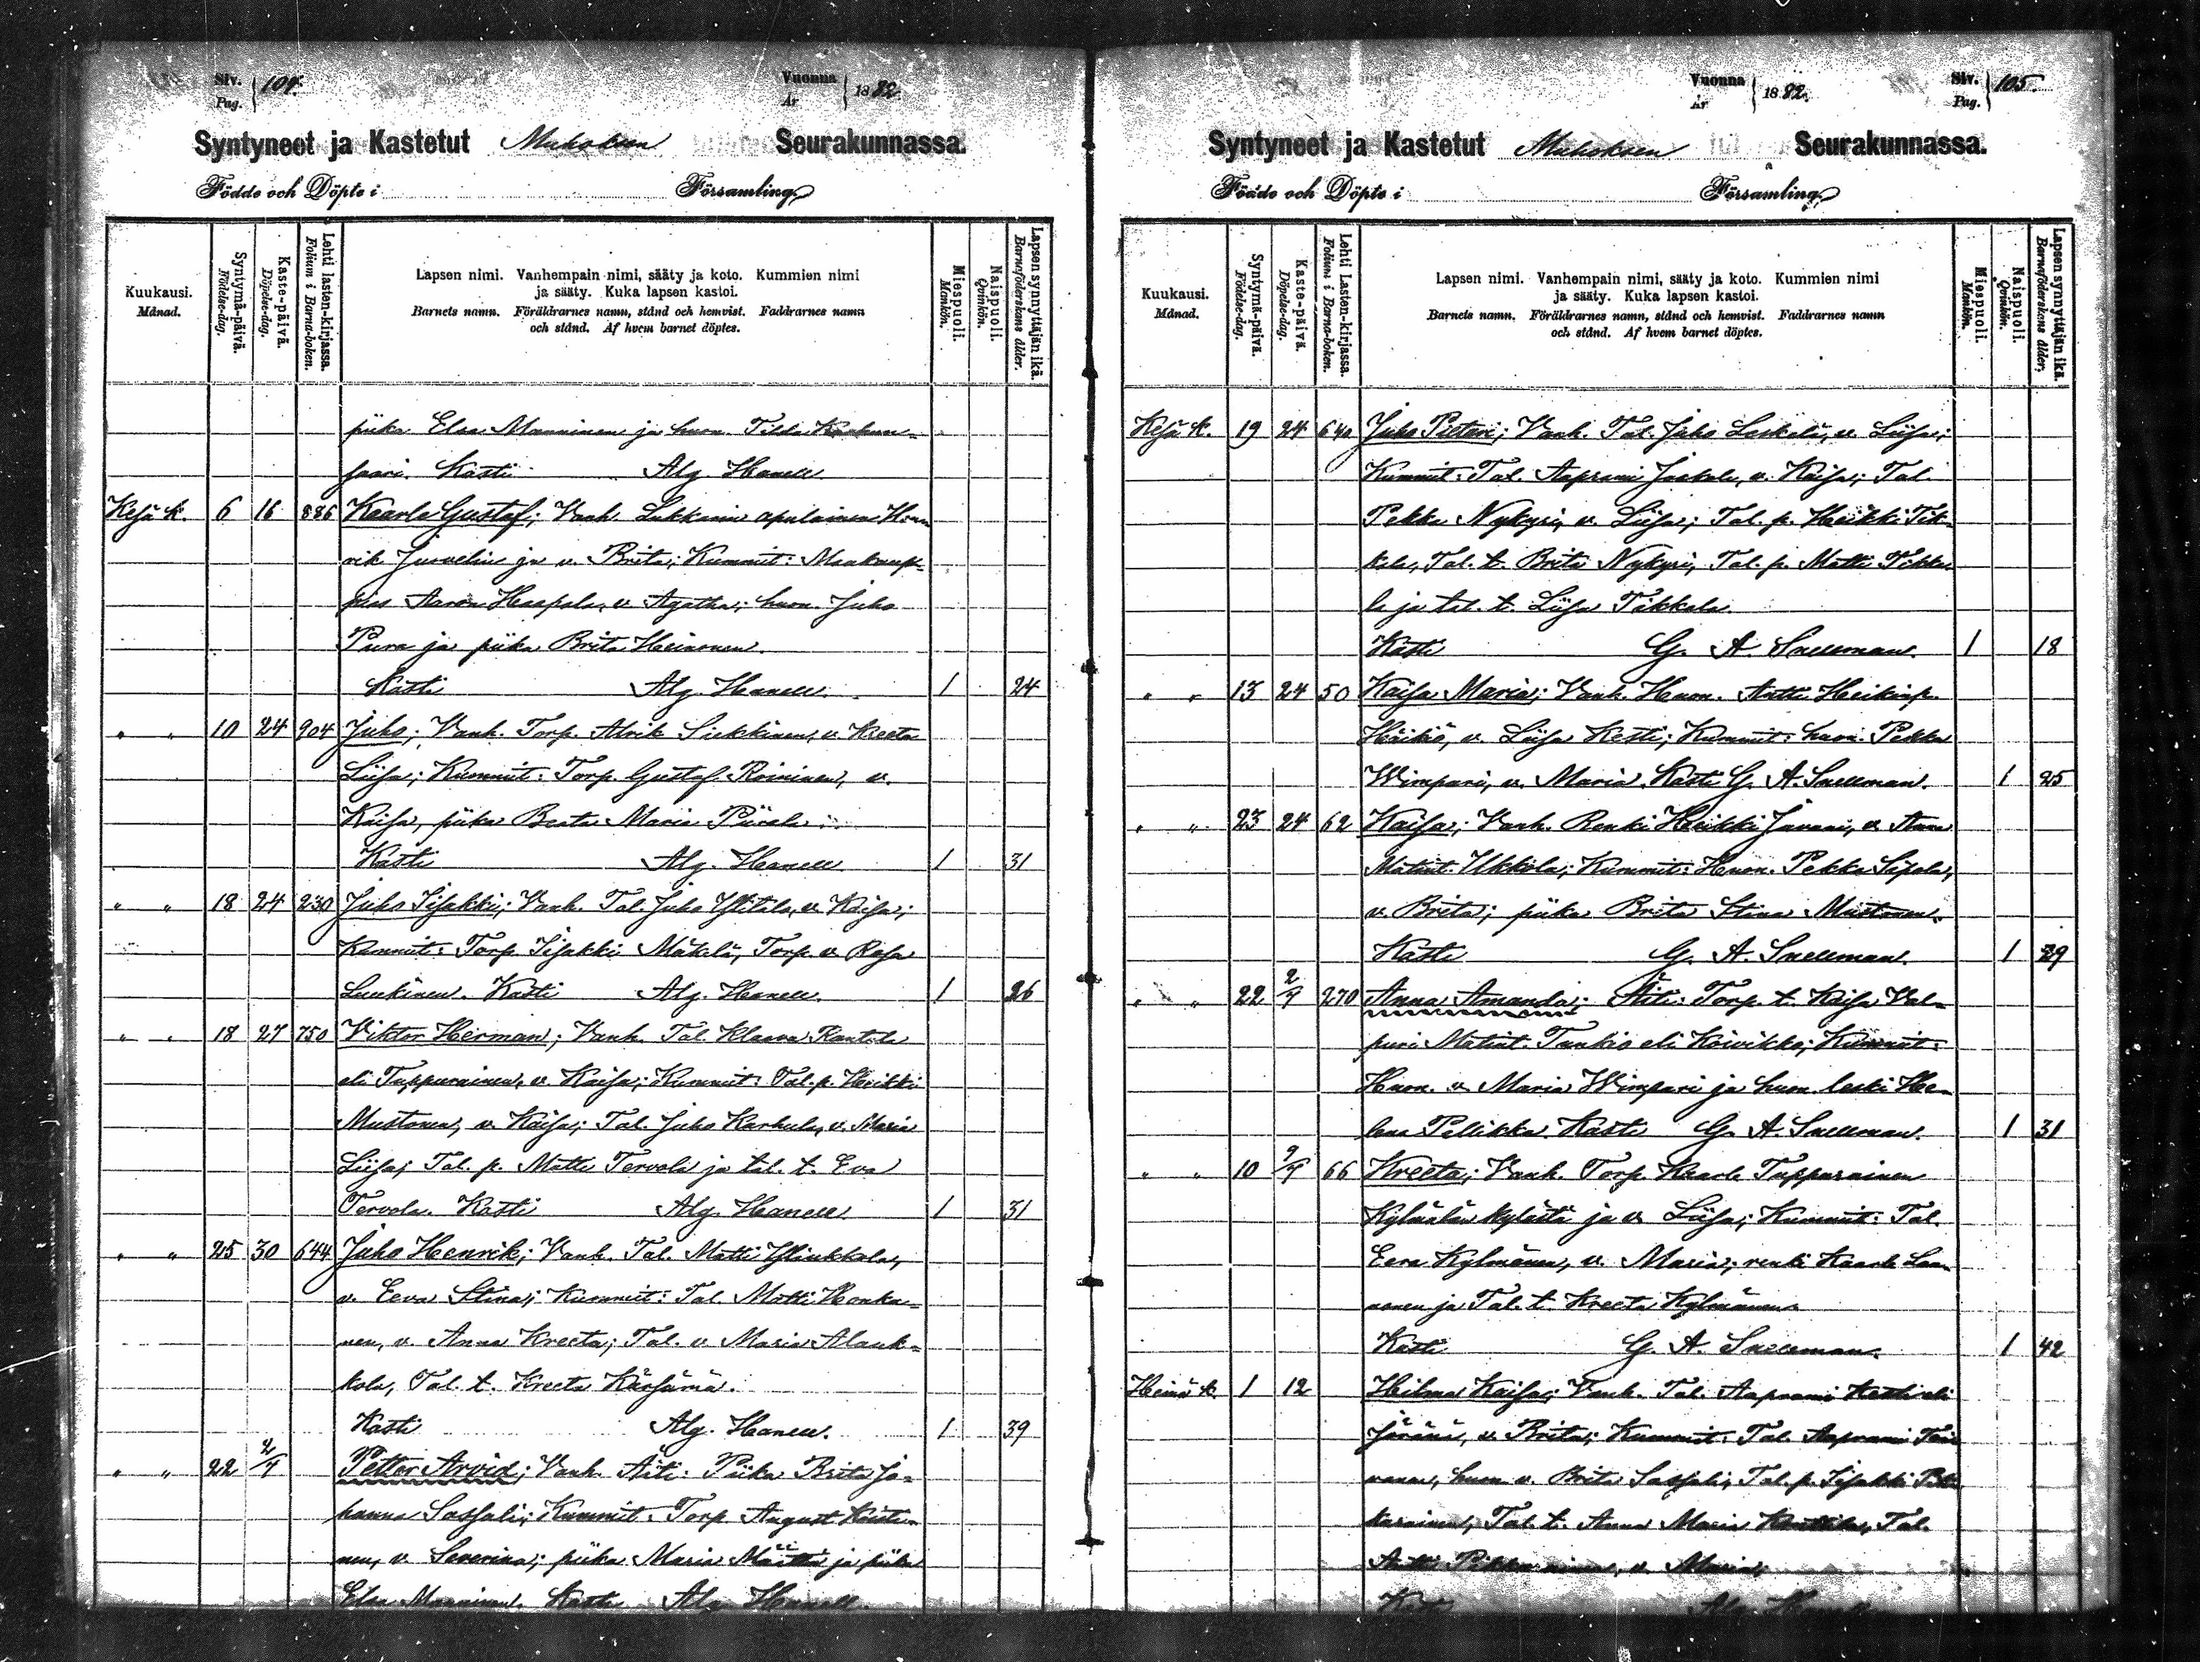 Siv. Pag. 104. Vuonna År 1882.
Syntyneet ja Kastetut Muhoksen Seurakunnassa.
Födde och Döpte i Församling
Kuukausi. Månad.
Syntymä-päivä. Födelse-dag.
Kaste-päivä. Döpelse-dag.
Lehti lasten-kirjassa. Folium i Barna-boken.
Lapsen nimi. Vanhempain nimi, sääty ja koto. Kummien nimi
ja sääty. Kuka lapsen kastoi.
Barnets namn. Föräldrarnes namn, stånd och hemvist. Faddrarnes namn
och stånd. Af hvem barnet döptes.
Miespuoli. Mankön.
Naispuoli. Qvinkön.
Lapsen synnyttäjän ikä. Barnaföderskans ålder.
piika Elsa Manninen ja huon. Tilda
saari. Kasti Alg. Hanell
Kesä k. 6 16 886 Kaarle Gustaf; Vanh. Lukkarin apulainen Hen
rik Juvelin ja v. Brita; Kummit: Maakaup-
pias Aaron Haapala, v. Agatha; huon. Juho
Pura ja piika Brita Heinonen.
Kasti Alg. Hanell. 1 24
" " 10 24 904 Juho; Vanh. Torp. Abrik Siekkinen, v. Kreeta
Liisa; Kummit: Torp. Gustaf Roininen, v.
Kaisa, piika Beata Maria Piirola.
Kasti Alg. Hanell 1 31
" " 18 24 230 Juho Iisakki; Vanh. Tal. Juho Ylitalo, v. Kaisa;
Kummit: Torp. Iisakki Mäkelä, Torp. v. Rosa
Luukinen. Kasti Alg. Hanell. 1 26
" " 18 27 750 Viktor Herman; Vanh. Tal. Klaava Rantala
eli Tuppurainen, v. Kaisa; Kummit: Tal. p. Heikki
Mustonen, v. Kaisa; Tal. Juho Karhula, v. Maria
Liisa; Tal. p. Matti Tervola ja tal. t. Eva
Tervola. Kasti Alg. Hanell 1 31
" " 25 30 644 Juho Henrik; Vanh. Tal. Matti Yliukkola,
v. Eeva Stina; Kummit: Tal. Matti Honka-
nen, v. Anna Kreeta; Tal. v. Maria Alauk-
kola, Tal. t. Kreeta Kärsämä.
Kasti Alg. Hanell. 1 39
" " 22 2/7 Petter Arvid; Vanh. Äiti: Piika Brita Jo-
hanna Sassali; Kummit: Torp. August
nen, v. Severina; piika Maria Määttä ja piika
Elsa Manninen. Kasti Alg. Hanell.
Vuonna År 1882. Siv. Pag. 105.
Syntyneet ja Kastetut Muhoksen Seurakunnassa.
Födde och Döpte i Församling
Kuukausi. Månad.
Syntymä-päivä. Födelse-dag.
Kaste-päivä. Döpelse-dag.
Lehti Lasten-kirjassa. Folium i Barna-boken.
Lapsen nimi. Vanhempain nimi, sääty ja koto. Kummien nimi
ja sääty. Kuka lapsen kastoi.
Barnets namn. Föräldrarnes namn, stånd och hemvist. Faddrarnes namn
och stånd. Af hvem barnet döptes.
Miespuoli. Mankön.
Naispuoli. Qvinkön.
Lapsen synnyttäjän ikä. Barnaföderskans ålder.
Kesä k. 19 24 640 Juho Pietari; Vanh. Tal. Juho Leskelä, v. Liisa;
Kummit: Tal. Aaprami Jaakola, v. Kaisa; Tal.
Pekka Nykyri, v. Liisa; Tal. p. Heikki Tik-
kala, Tal. t. Brita Nykyri, Tal. p. Matti Tikka
la ja tal. t. Liisa Tikkala
Kasti G. A. Snellman. 1 18
" " 13 24 50 Kaisa Maria; Vanh. Huon. Antti Heikinp.
Häikiö, v. Liisa Kesti; Kummit: huon. Pekka
Wimpari, v. Maria. Kasti G. A. Snellman. 1 25
" " 23 24 62 Kaisa; Vanh. Renki Heikki Juvani, v. Anna
Matint. Ukkola; Kummit: Huon. Pekka Sipola,
v. Brita; piika Brita Stina Mustonen.
Kasti G. A. Snellman. 1 29
" " 22 2/7 270 Anna Amanda; Äiti: Torp. t. Kaisa Val-
puri Matint. Tunkio eli Koivikko; Kummit:
Huon. v. Maria Wimpari ja huon. leski He-
lena Pellikka. Kasti G. A. Snellman. 1 31
" " 10 9/7 66 Kreeta; Vanh. Torp. Kaarle Tuppurainen
Kylmälän kylästä ja v. Liisa; Kummit: Tal.
Eera Kylmänen, v. Maria; renki Kaarle Laa-
nonen ja Tal. t. Kreeta Kylmänen.
Kasti G. A. Snellman. 1 42
Heinä k. 1 12 Hilma Kaisa; Vanh. Tal. Aaprami Kesti eli
v. Brita; Kummit: Tal. Aaprami
huon. v. Brita Sassali, Tal. p. Iisakki
karainen, Tal. t. Anna Maria Tal.
Antti v. Maria;
Kasti Alg. Hanell